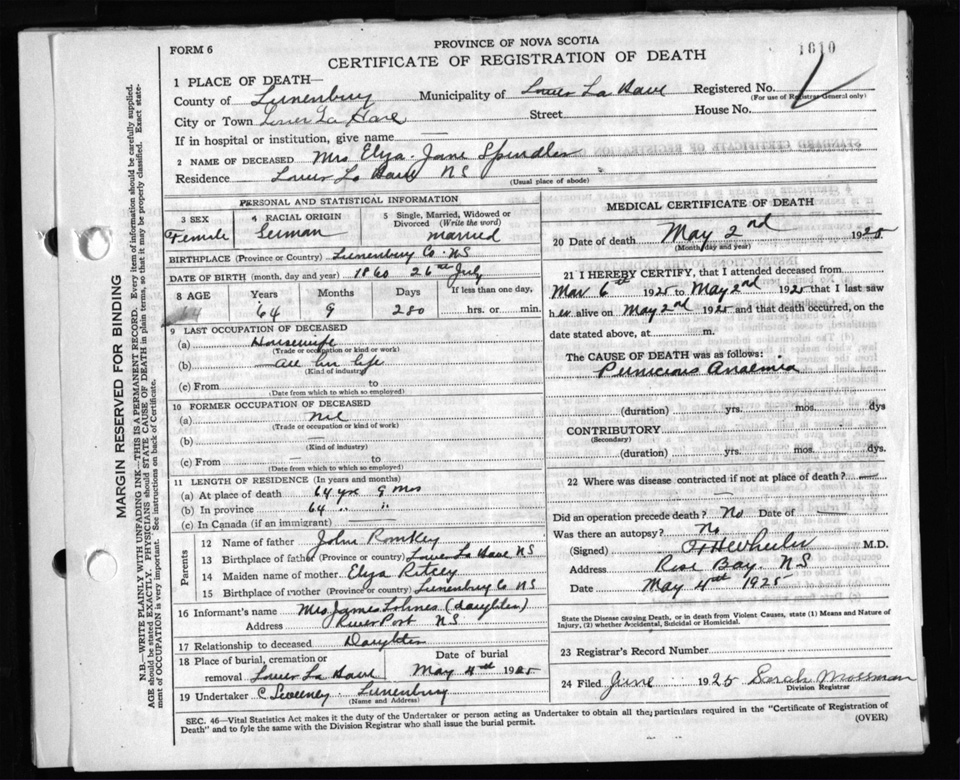 PROVINCE OF NOVA SCOTIA
FORM 6
CERTIFICATE OF REGISTRATION OF DEATH
1810
1 PLACE OF DEATH—
County of Lunenburg Municipality of Lower La Have Registered No.
(For use of Registrar General only)
City or Town Lower La Have Street House No.
If in hospital or institution, give name —
2 NAME OF DECEASED Mrs Elya Jane Spindler
Residence Lower La Have NS
(Usual place of abode)
PERSONAL AND STATISTICAL INFORMATION
3 SEX Female
4 RACIAL ORIGIN German
5 Single, Married, Widowed or Divorced (Write the word) married
BIRTHPLACE (Province or Country) Lunenburg Co. NS
DATE OF BIRTH (month, day and year) 1860 26th July
8 AGE Years Months Days If less than one day,
64 64 9 280 hrs. or min.
9 LAST OCCUPATION OF DECEASED
(a) Housewife
(Trade or occupation or kind or work)
(b) all her life
(Kind of industry)
(c) From to
(Date from which to which so employed)
10 FORMER OCCUPATION OF DECEASED
(a) nil
(Trade or occupation or kind of work)
(b) —
(Kind of industry)
(c) From — to
(Date from which to which so employed)
11 LENGTH OF RESIDENCE (In years and months)
(a) At place of death 64 yrs 9 mos
(b) In province 64 " "
(c) In Canada (if an immigrant)
Parents
12 Name of father John Romkey
13 Birthplace of father (Province or country) Lower La Have NS
14 Maiden name of mother Elya Ritcey
15 Birthplace of mother (Province or country) Lunenburg Co NS
16 Informant's name Mrs James Lohnes (daughter)
Address River Port NS
17 Relationship to deceased Daughter
18 Place of burial, cremation or removal Lower La Have
Date of burial May 4th 1925
19 Undertaker C Sweeney Lunenburg
(Name and Address)
MEDICAL CERTIFICATE OF DEATH
20 Date of death May 2nd 1925
(Month, day and year)
21 I HEREBY CERTIFY, that I attended deceased from
Mar 6th 1925 to May 2nd 1925 that I last saw
her alive on May 2nd 1925 and that death occurred, on the
date stated above, at m.
The CAUSE OF DEATH was as follows:
Pernicious Anaemia
(duration) yrs. mos. dys
CONTRIBUTORY
(Secondary)
(duration) yrs. mos. dys.
22 Where was disease contracted if not at place of death?
—
Did an operation precede death? No Date of —
Was there an autopsy? No
(Signed) Wheeler M.D.
Address Rose Bay. NS
Date May 4th 1925
State the Disease causing Death, or in death from Violent Causes, state (1) Means and Nature of
Injury, (2) whether Accidental, Suicidal or Homicidal.
23 Registrar's Record Number
24 Filed June 1925 Sarah Mossman
Division Registrar
SEC. 46—Vital Statistics Act makes it the duty of the Undertaker or person acting as Undertaker to obtain all the particulars required in the "Certificate of Registration of
Death" and to fyle the same with the Division Registrar who shall issue the burial permit.
(OVER)
MARGIN RESERVED FOR BINDING
N.B.—WRITE PLAINLY WITH UNFADING INK—THIS IS A PERMANENT RECORD. Every item of information should be carefully supplied.
AGE should be stated EXACTLY. PHYSICIANS should STATE CAUSE OF DEATH in plain terms, so that it may be properly classified. Exact statement of OCCUPATION is very important. See instructions on back of Certificate.